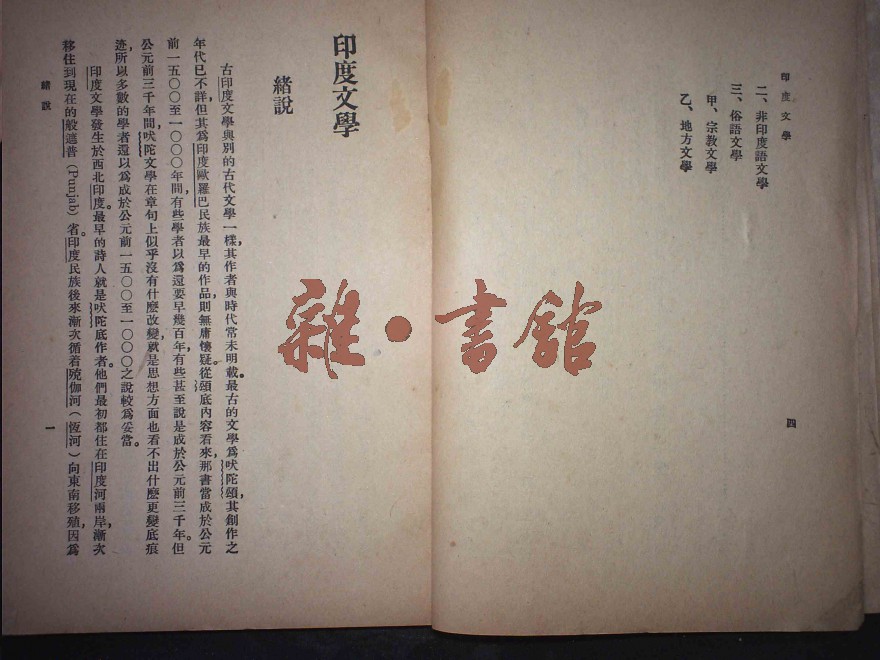 印度文學
二、非印度語文學
三、俗語文學
甲、宗教文學
乙、地方文學
四
雜·書館
印度文學
緒說
古印度文學與別的古代文學一樣，其作者與時代常未明載。最古的文學爲吠陀頌，其創作之
年代已不詳但其爲印度歐羅巴民族最早的作品，則無庸懷疑。從頌底內容看來，那書當成於公元
前一五〇〇至一〇〇〇年間，有些學者以爲還要早幾百年，有些甚至說是成於公元前三千年。但
公元前三千年間，吠陀文學在章句上似乎沒有什麼改變，就是思想方面也看不出什麼更變底痕
迹，所以多數的學者還以爲成於公元前一五〇〇至一〇〇〇之說較爲妥當。
印度文學發生於西北印度。最早的詩人就是吠陀底作者。他們最初都住在印度河兩岸，漸次
移住到現在的般遮普（Punjab）省。印度民族後來漸次循着殑伽河（恆河）向東南移殖，因爲
緒說
一